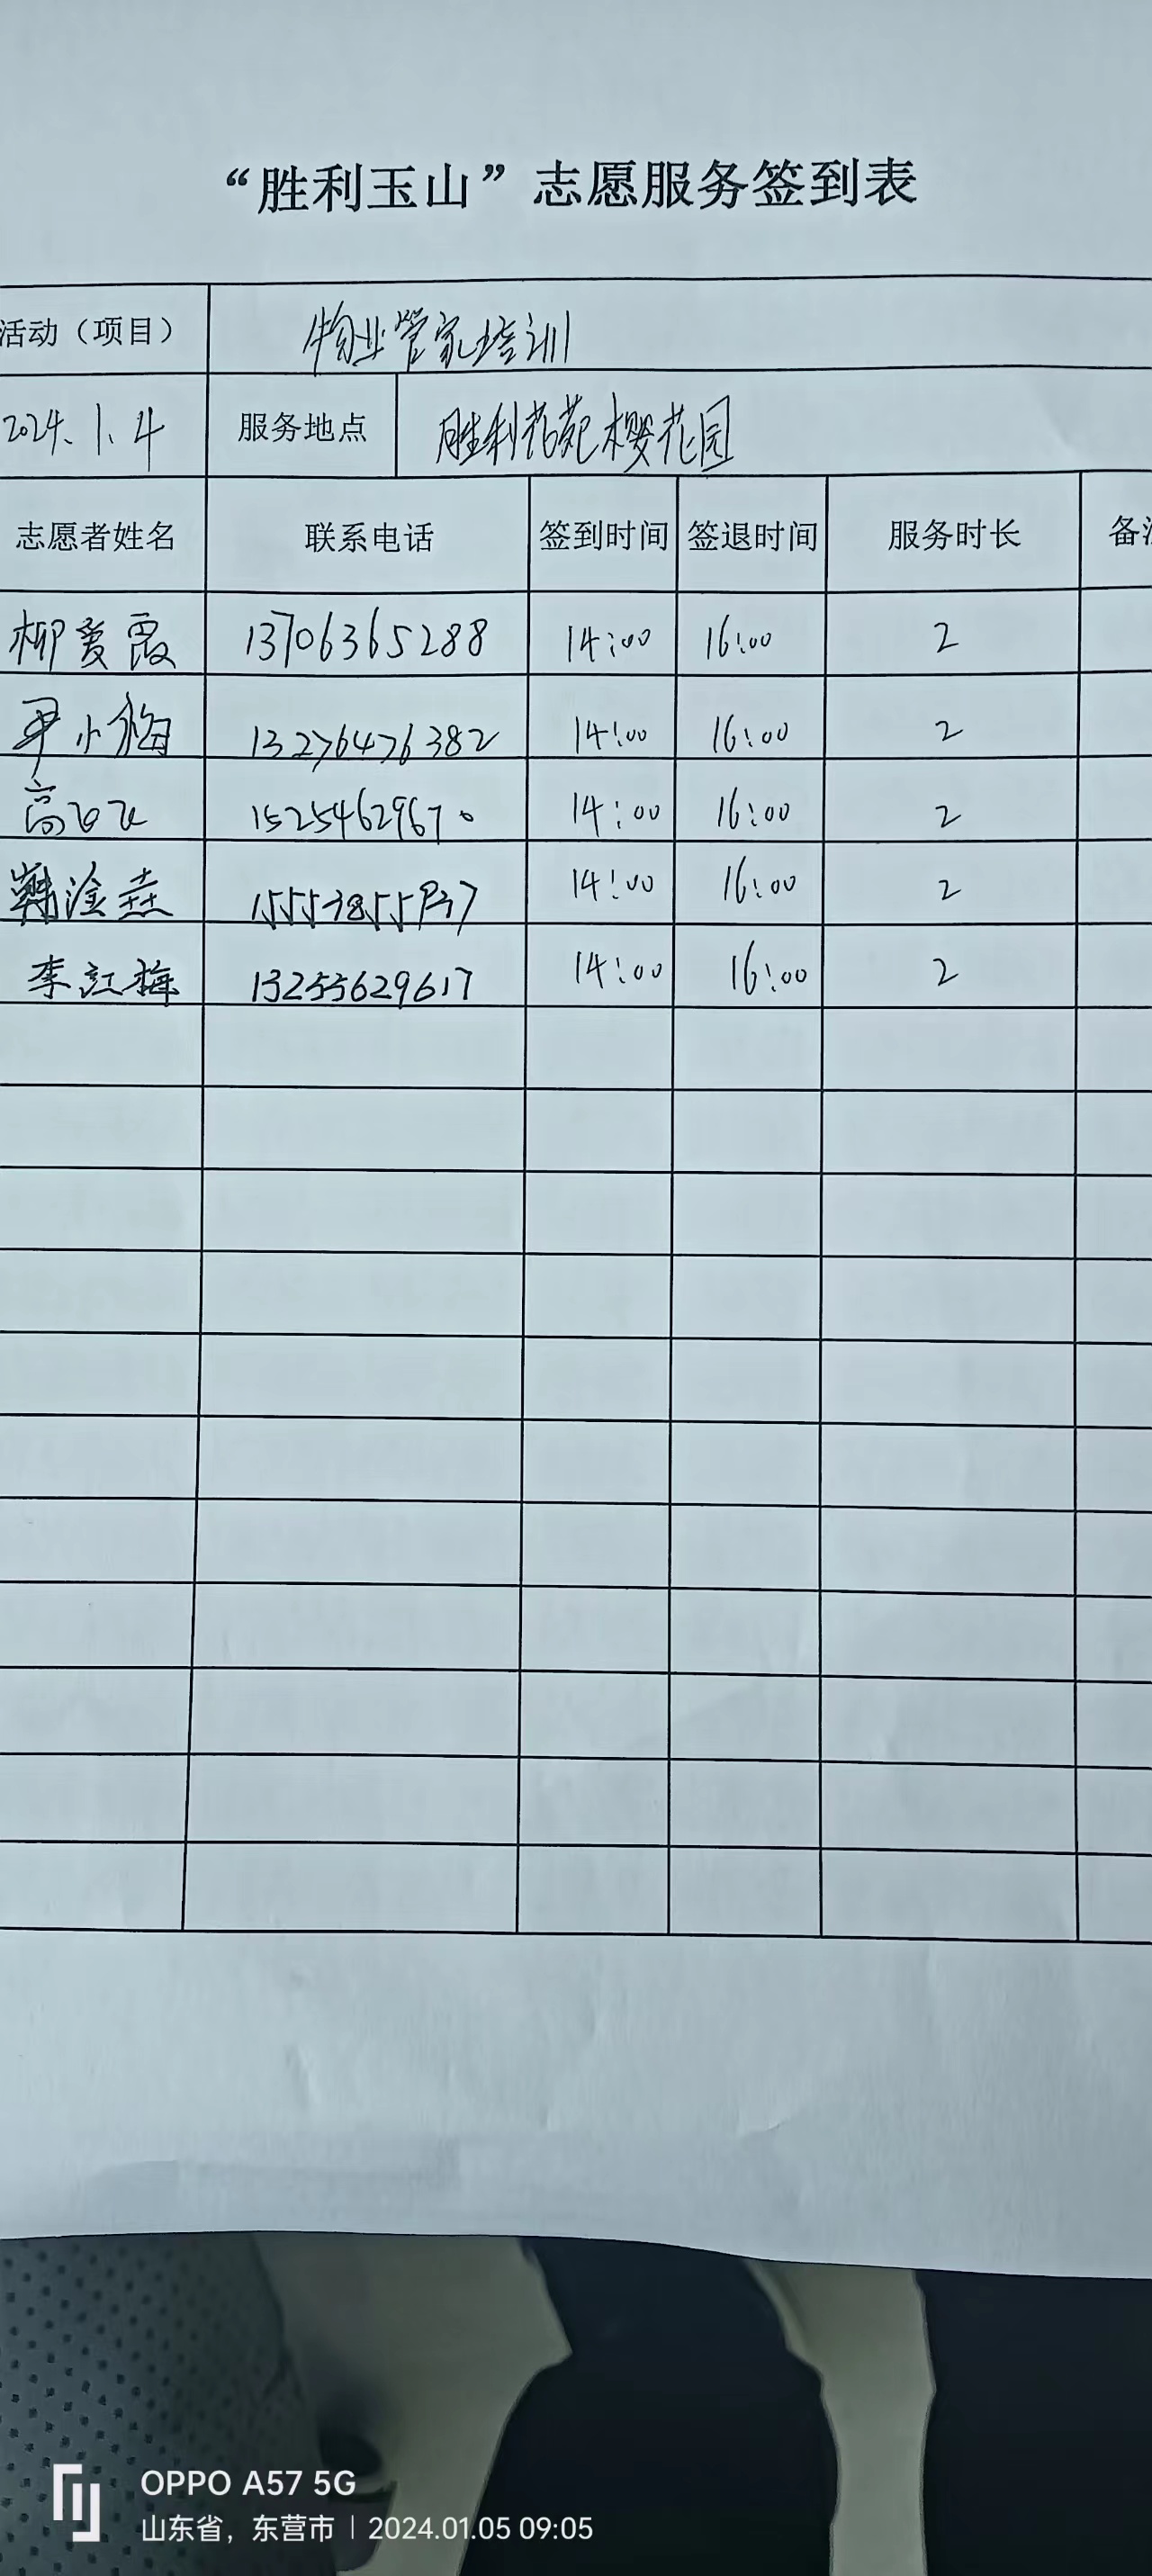 “胜利玉山”志愿服务签到表
活动（项目） 物业管家培训
2024.1.4 服务地点 胜利花苑樱花园
志愿者姓名 联系电话 签到时间 签退时间 服务时长 备注
柳爱霞 13706365288 14:00 16:00 2
尹小梅 13276476382 14:00 16:00 2
高 15254629670 14:00 16:00 2
韩淦垚 14:00 16:00 2
李红梅 13255629617 14:00 16:00 2
OPPO A57 5G
山东省，东营市 | 2024.01.05 09:05